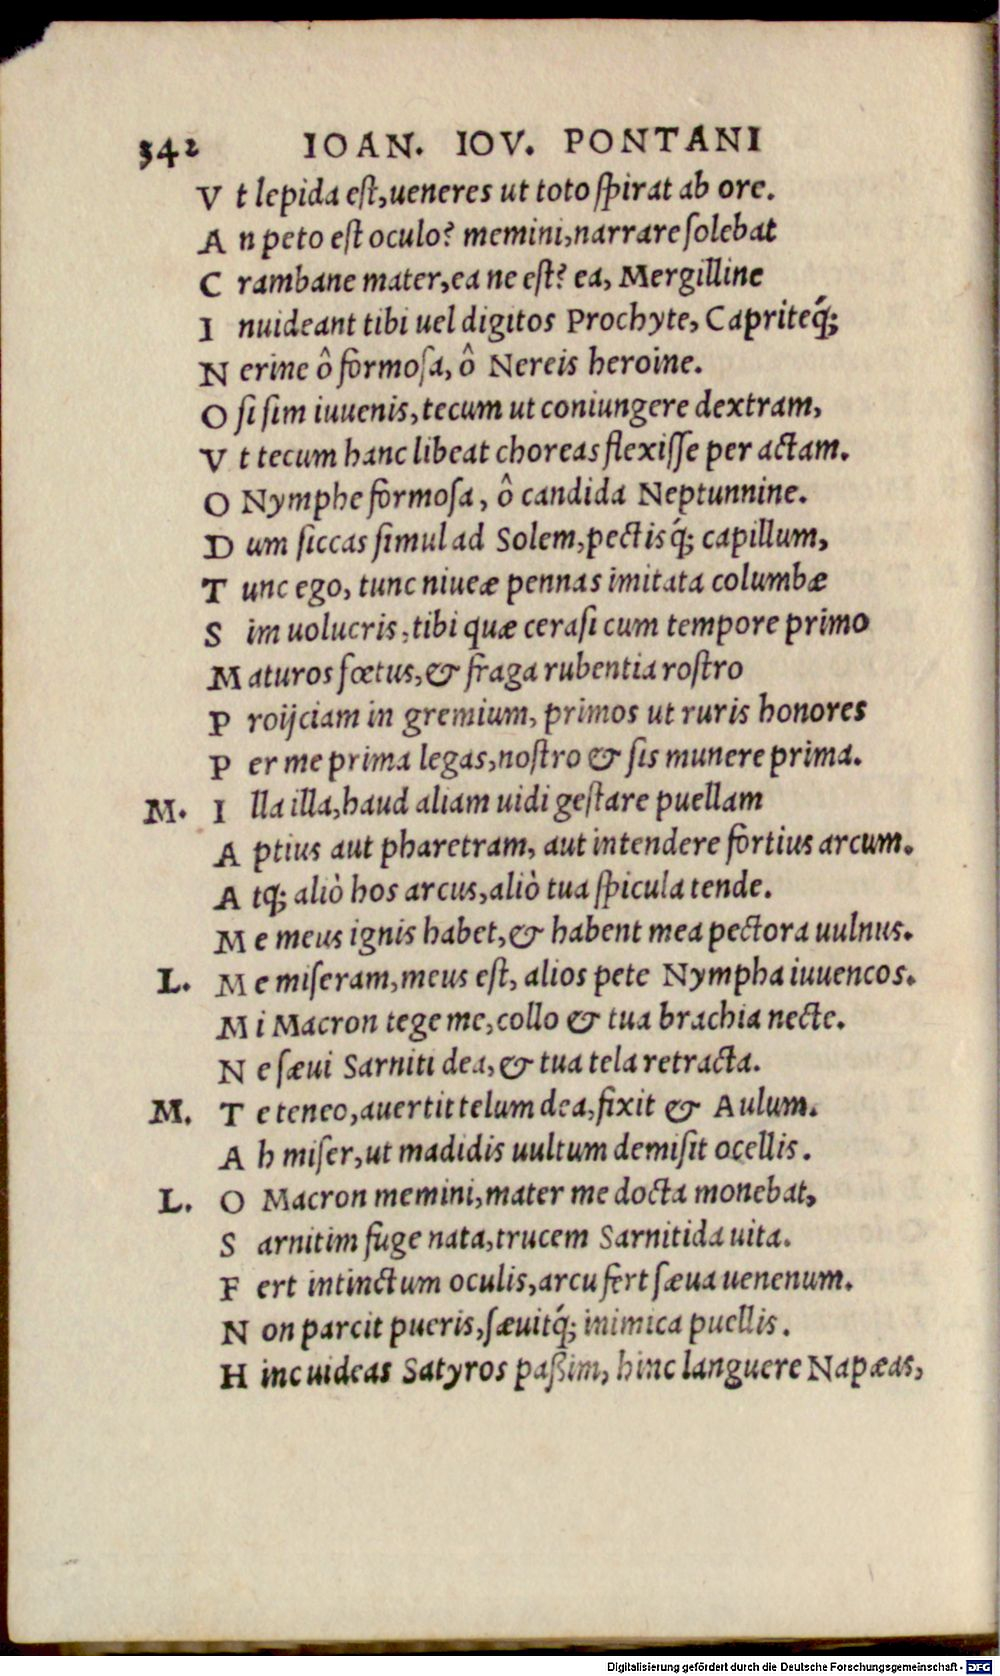 342 IOAN. IOV. PONTANI
V t lepida eſt,ueneres ut toto ſpirat ab ore.
A n peto eſt oculo? memini,narrare ſolebat
C rambane mater,ea ne eſt? ea, Mergilline
I nuideant tibi uel digitos Prochyte, Capriteq́;
N erine ô formoſa, ô Nereis heroine.
O ſi ſim iuuenis,tecum ut coniungere dextram,
V t tecum hanc libeat choreas flexiſſe per actam.
O Nymphe formoſa, ô candida Neptunnine.
D um ſiccas ſimul ad Solem,pectisq́; capillum,
T unc ego, tunc niueæ pennas imitata columbæ
S im uolucris,tibi quæ ceraſi cum tempore primo
M aturos fœtus,& fraga rubentia roſtro
P roijciam in gremium, primos ut ruris honores
P er me prima legas,noſtro & ſis munere prima.
M. I lla illa,haud aliam uidi geſtare puellam
A ptius aut pharetram, aut intendere fortius arcum.
A tq; aliò hos arcus,aliò tua ſpicula tende.
M e meus ignis habet,& habent mea pectora uulnus.
L. M e miſeram,meus eſt, alios pete Nympha iuuencos.
M i Macron tege me,collo & tua brachia necte.
N e ſæui Sarniti dea,& tua tela retracta.
M. T e teneo,auertit telum dea,fixit & Aulum.
A h miſer,ut madidis uultum demiſit ocellis.
L. O Macron memini,mater me docta monebat,
S arnitim fuge nata,trucem Sarnitida uita.
F ert intinctum oculis,arcu fert ſæua uenenum.
N on parcit pueris,ſæuitq́; inimica puellis.
H inc uideas Satyros paßim, hinc languere Napæas,
Digitalisierung gefördert durch die Deutsche Forschungsgemeinschaft - DFG